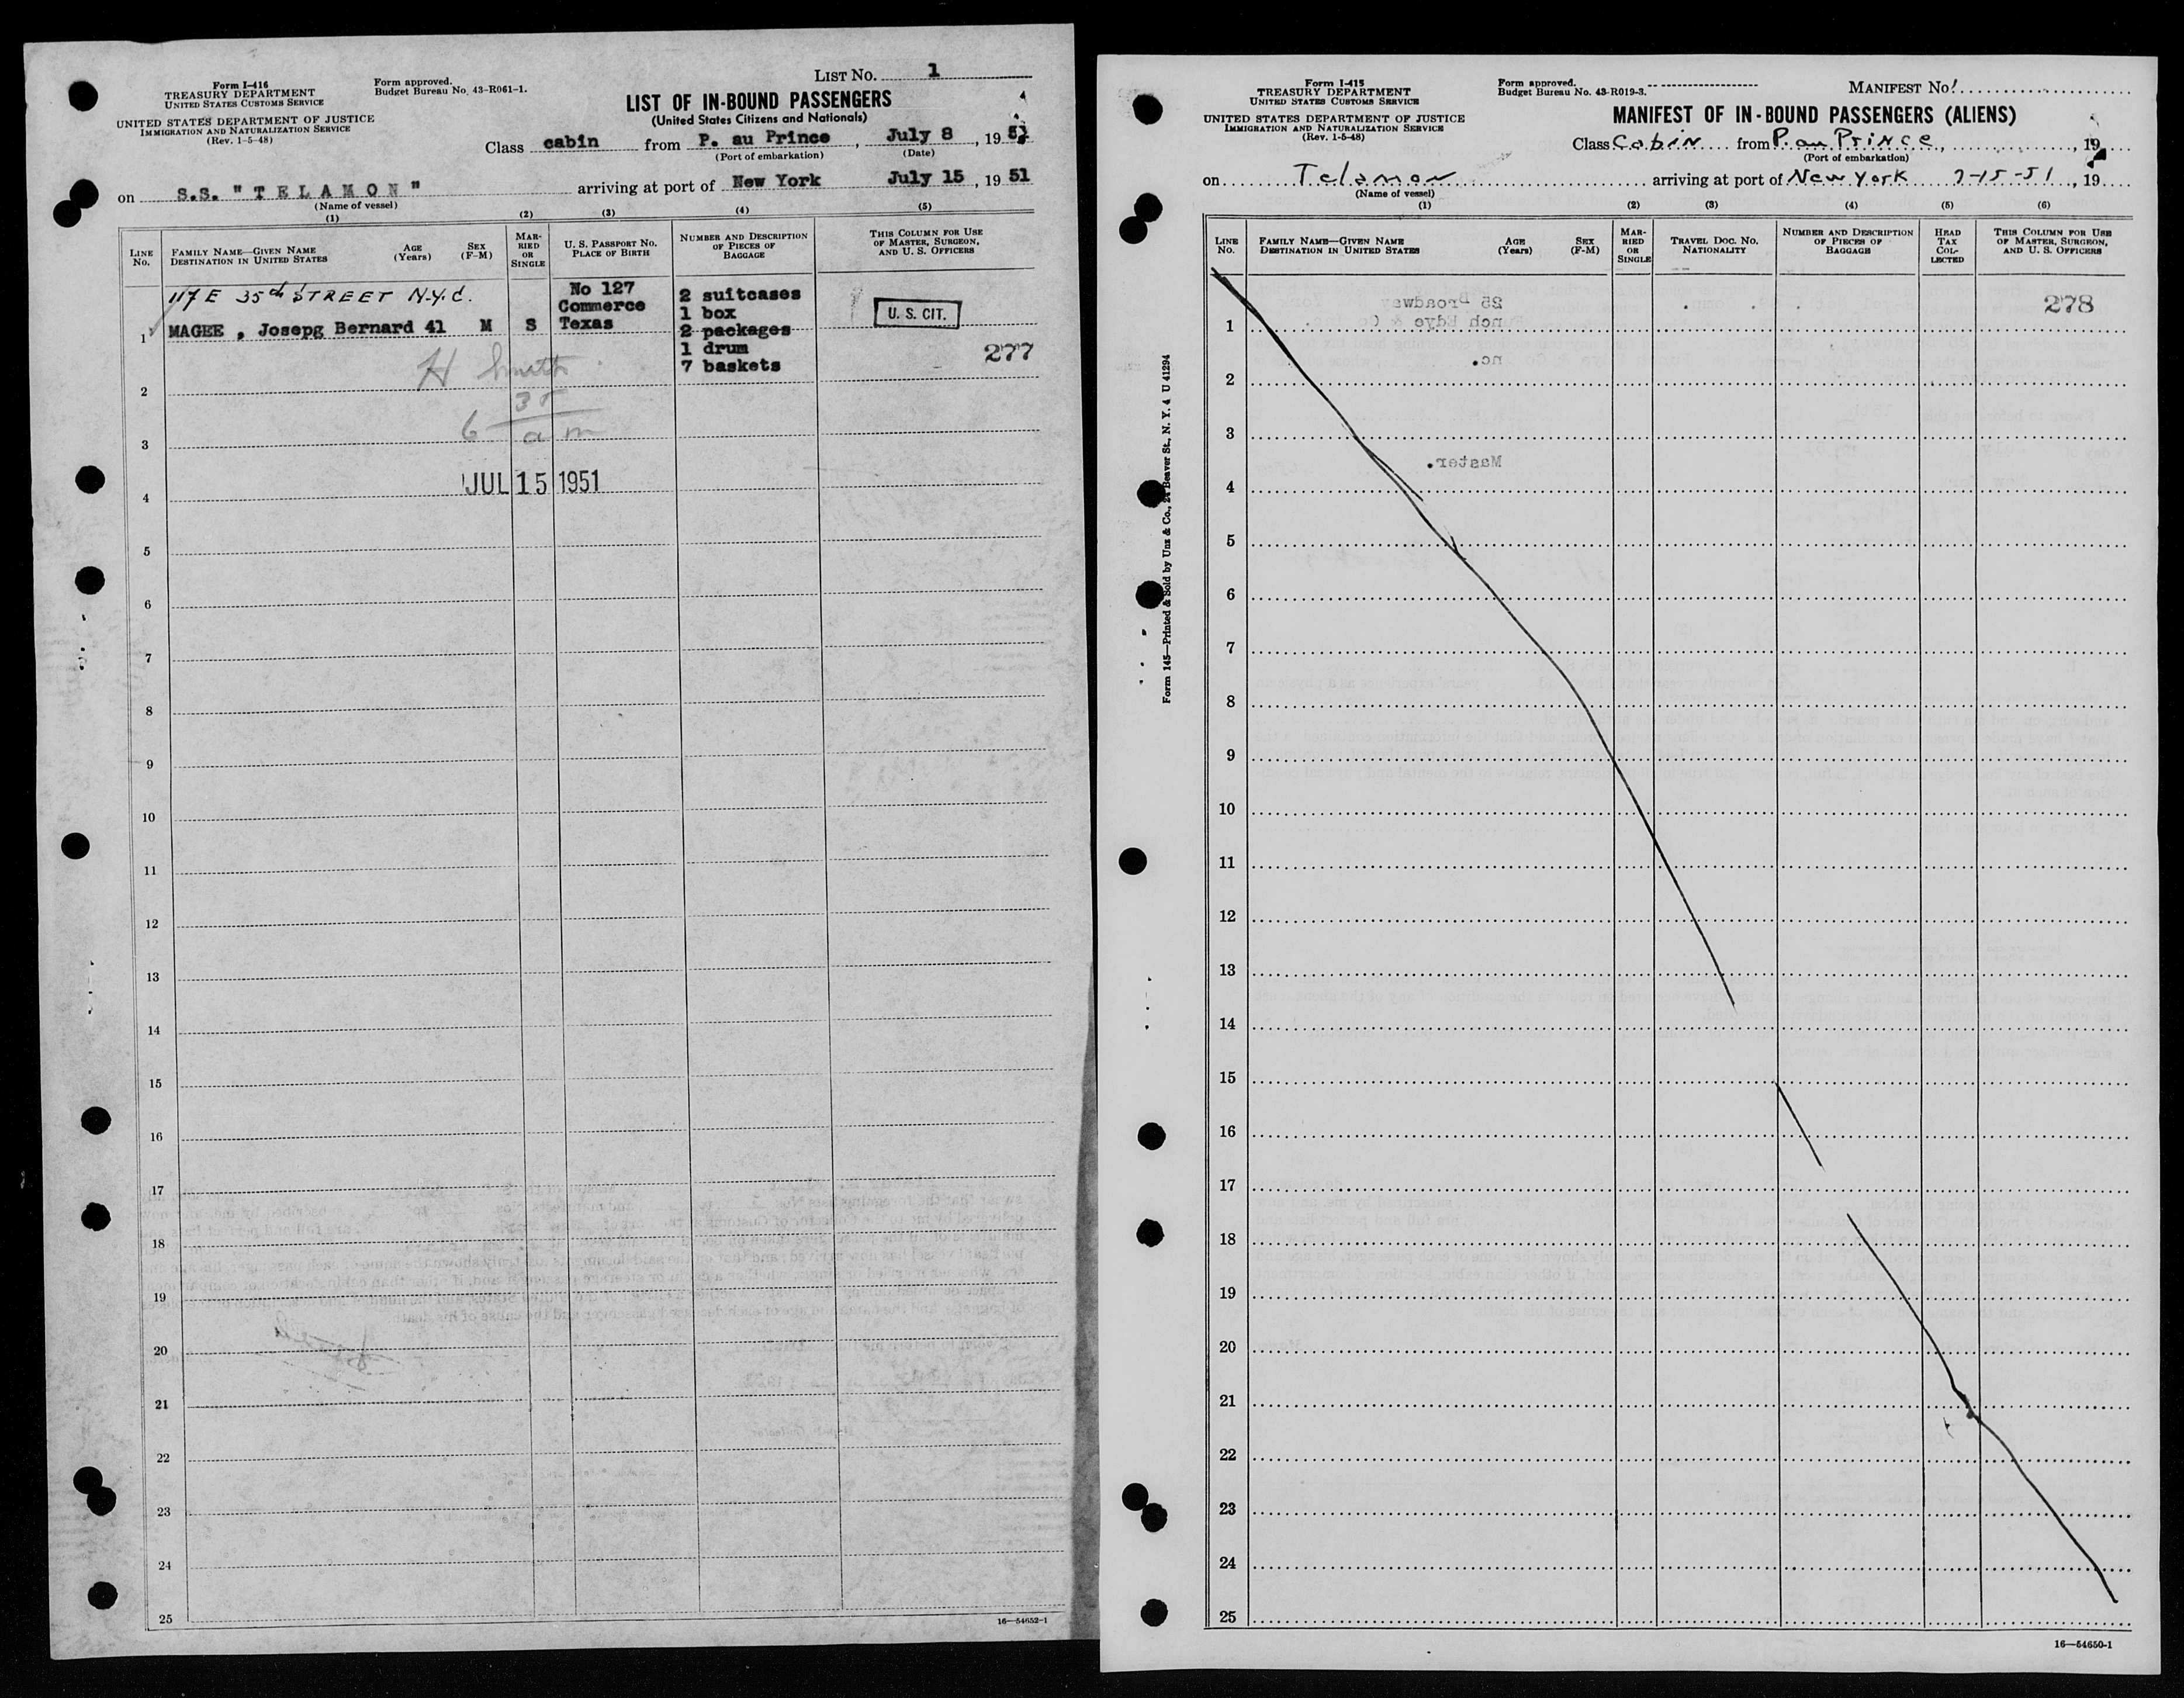 Form I-416
TREASURY DEPARTMENT
UNITED STATES CUSTOMS SERVICE
UNITED STATES DEPARTMENT OF JUSTICE
IMMIGRATION AND NATURALIZATION SERVICE
(Rev. 1-5-48)
Form approved.
Budget Bureau No. 43-R061-1.
LIST NO. 1
LIST OF IN-BOUND PASSENGERS
(United States Citizens and Nationals)
Class cabin from P. au Prince, July 8, 1951
(Port of embarkation) (Date)
on S.S. "TELAMON" arriving at port of New York July 15, 1951
(Name of vessel)
(1) (2) (3) (4) (5)
LINE No.
FAMILY NAME—GIVEN NAME
DESTINATION IN UNITED STATES
AGE (Years)
SEX (F-M)
MARRIED OR SINGLE
U. S. PASSPORT NO.
PLACE OF BIRTH
NUMBER AND DESCRIPTION OF PIECES OF BAGGAGE
THIS COLUMN FOR USE OF MASTER, SURGEON, AND U. S. OFFICERS
117 E 35th STREET N.Y.C.
1 MAGEE , Josepg Bernard 41 M S
No 127
Commerce
Texas
2 suitcases
1 box
2 packages
1 drum
7 baskets
U. S. CIT.
277
H Smith
6 35
am
JUL 15 1951
2
3
4
5
6
7
8
9
10
11
12
13
14
15
16
17
18
19
20
21
22
23
24
25
16—54652-1
Form 145—Printed & Sold by Unz & Co., 24 Beaver St., N. Y. 4 U 41294
Form I-415
TREASURY DEPARTMENT
UNITED STATES CUSTOMS SERVICE
UNITED STATES DEPARTMENT OF JUSTICE
IMMIGRATION AND NATURALIZATION SERVICE
(Rev. 1-5-48)
Form approved.
Budget Bureau No. 43-R019-3.
MANIFEST NO. 1
MANIFEST OF IN-BOUND PASSENGERS (ALIENS)
Class Cabin from P. au Prince, , 19
(Port of embarkation)
on Telamon arriving at port of New York 7-15-51, 19
(Name of vessel)
(1) (2) (3) (4) (5) (6)
LINE No.
FAMILY NAME—GIVEN NAME
DESTINATION IN UNITED STATES
AGE (Years)
SEX (F-M)
MARRIED OR SINGLE
TRAVEL DOC. NO.
NATIONALITY
NUMBER AND DESCRIPTION OF PIECES OF BAGGAGE
HEAD TAX COLLECTED
THIS COLUMN FOR USE OF MASTER, SURGEON, AND U. S. OFFICERS
25 Broadway
278
1
nch Edye & Co
nc.
2
3
Master.
4
5
6
7
8
9
10
11
12
13
14
15
16
17
18
19
20
21
22
23
24
25
16—54650-1